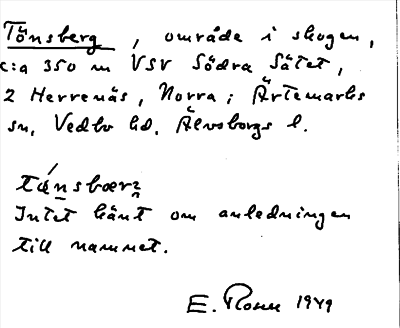 Tönsberg, område i skogen,
c:a 350 m VSV Södra Sätet,
2 Herrenäs, Norra i Ärtemarks
sn, Vedbo hd. Älvsborgs l.
Intet känt om anledningen
till namnet.
E. Rosen 1949